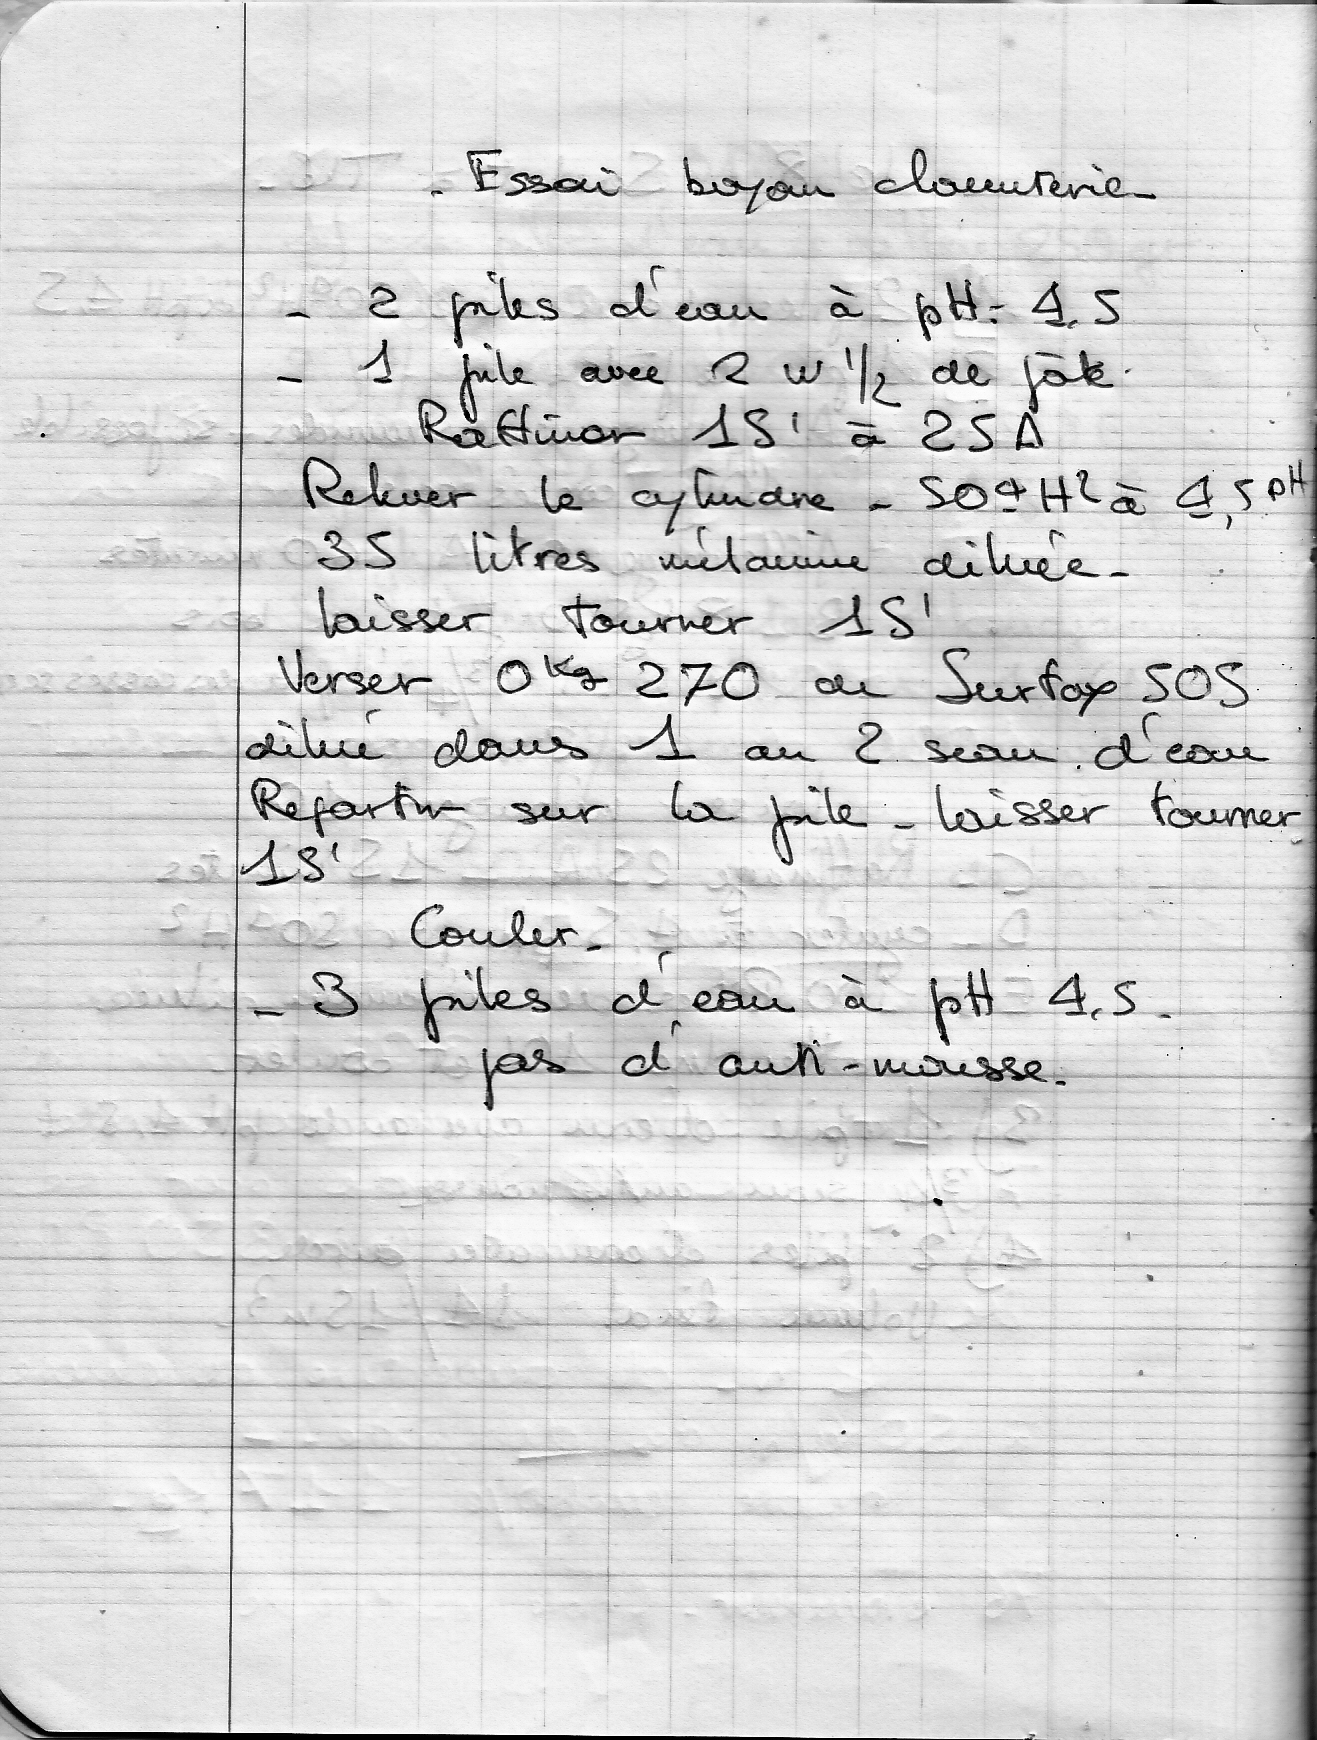 - Essai boyau charcuterie -
- 2 piles d'eau à pH = 4,5
- 1 pile avec 2 w 1/2 de pâte.
Raffiner 15' à 25 A
Relever le cylindre - SO4H2 à 4,5 pH
35 litres mélamine diluée -
laisser tourner 15'
Verser 0 Kg 270 de 505
dilué dans 1 au 2 seau d'eau
Repartir sur la pile - laisser tourner
15'
Couler -
- 3 piles d'eau à pH 4,5 -
pas d'anti-mousse.